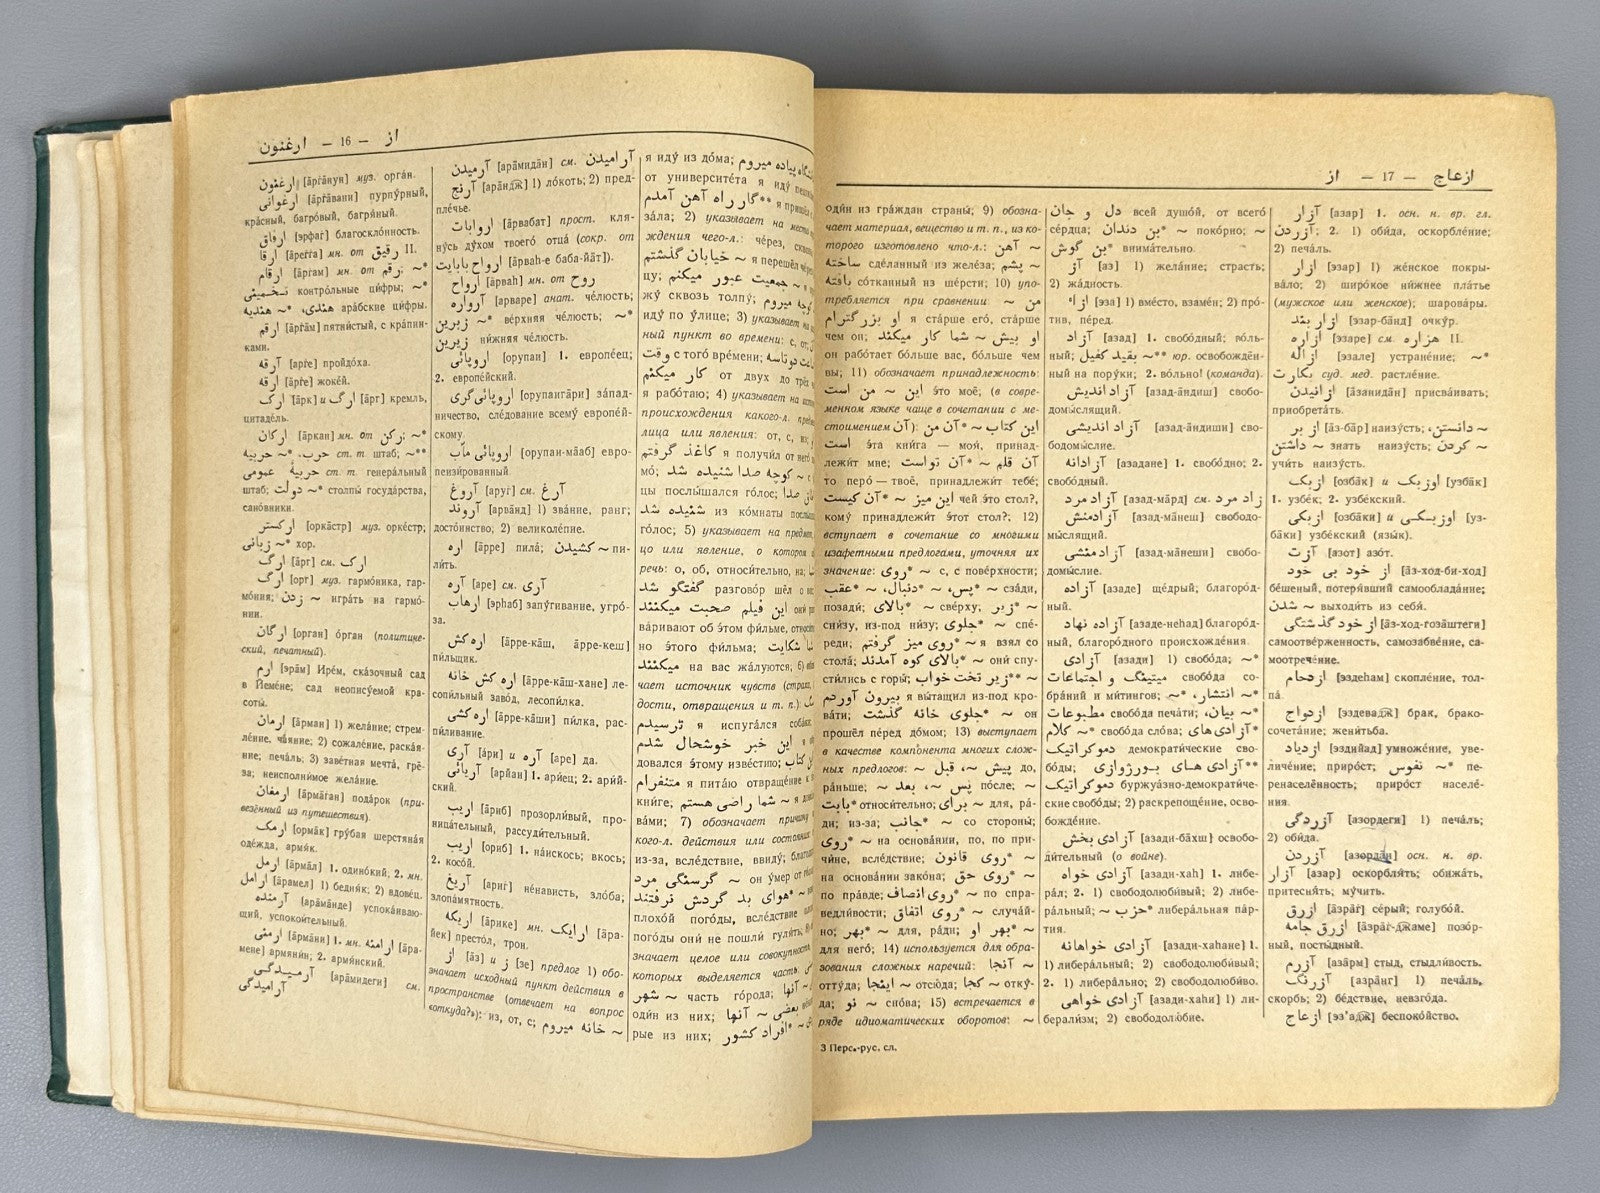 ارغنون — 16 — از
ارغنون [āрґāнун] муз. орга́н.
ارغوانی [āрґāвани] пурпу́рный,
кра́сный, багро́вый, багря́ный.
ارفاق [эрфаґ] благоскло́нность.
ارقا [āреґґа] мн. от رقیق II.
ارقام [āрґам] мн. от رقم; ~*
контро́льные ци́фры; ~*
هندی، ~* هندیه ара́бские ци́фры.
ارقم [āрґāм] пятни́стый, с кра́пин-
ками.
ارقه [арґе] пройдо́ха.
ارقه [āрґе] жоке́й.
ارک [āрк] и ارگ [āрг] кремль,
цитаде́ль.
ارکان [āркан] мн. от رکن; ~*
حرب، ~* حربیه ст. т. штаб; ~**
حربیهٔ عمومی ст. т. генера́льный
штаб; ~* دولت столпы́ госуда́рства,
сано́вники.
ارکستر [оркāстр] муз. орке́стр;
~* زبانی хор.
ارگ [āрг] см. ارک
ارگ [орг] муз. гармо́ника, гар-
мо́ния; ~ زدن игра́ть на гармо́-
нии.
ارگان [орган] о́рган (полити́че-
ский, печатный).
ارم [эрāм] Ире́м, ска́зочный сад
в Йе́мене; сад неопису́емой кра-
соты́.
ارمان [āрман] 1) жела́ние; стрем-
ле́ние, ча́яние; 2) сожале́ние, раска́я-
ние; печа́ль; 3) заве́тная мечта́, грё-
за; неисполни́мое жела́ние.
ارمغان [āрмāґан] пода́рок (при-
везённый из путешествия).
ارمک [ормāк] гру́бая шерстяна́я
оде́жда, армя́к.
ارمل [āрмāл] 1. одино́кий, 2. мн.
ارامل [āрамел] 1) бедня́к; 2) вдове́ц.
ارمنده [āрāмāнде] успока́иваю-
щий, успокои́тельный.
ارمنی [āрмāни] 1. мн. ارامنه [āра-
мене] армяни́н; 2. армя́нский.
آرمیدگی [арāмидеги] см.
آرامیدگی
آرمیدن [арāмидāн] см. آرامیدن
آرنج [арāндж] 1) ло́коть; 2) пред-
пле́чье.
اروابات [āрвабат] прост. кля-
ну́сь ду́хом твоего́ отца́ (сокр. от
ارواح بابایت [āрваһ-е баба-йāт]).
ارواح [āрваһ] мн. от روح
آرواره [арваре] анат. че́люсть;
~* زبرین ве́рхняя че́люсть; ~*
زیرین ни́жняя че́люсть.
اروپائی [орупаи] 1. европе́ец;
2. европе́йский.
اروپائی‌گری [орупаигāри] за́пад-
ничество, сле́дование всему́ европе́й-
скому.
اروپائی مآب [орупаи-мāаб] евро-
пеизи́рованный.
آروغ [аруґ] см. آرغ
آروند [арвāнд] 1) зва́ние, ранг;
досто́инство; 2) великоле́пие.
اره [āрре] пила́; ~ کشیدن пи-
ли́ть.
آره [аре] см. آری
ارهاب [эрһаб] запу́гивание, угро́-
за.
اره کش [āрре-кāш, āрре-кеш]
пи́льщик.
اره کش خانه [āрре-кāш-хане] ле-
сопи́льный заво́д, лесопи́лка.
اره کشی [āрре-кāши] пи́лка, рас-
пи́ливание.
آری [āри] и آره [аре] да.
آریائی [арйаи] 1. ари́ец; 2. ари́й-
ский.
اریب [āриб] прозорли́вый, про-
ница́тельный, рассуди́тельный.
اریب [ориб] 1. на́искось; вкось;
2. косо́й.
آریغ [ариґ] не́нависть, зло́ба;
злопа́мятность.
اریکه [āрике] мн. ارایک [āра-
йек] престо́л, трон.
از [āз] и ز [зе] предлог 1) обо-
значает исходный пункт действия в
пространстве (отвечает на вопрос
«откуда?»): из, от, с; ~ خانه میروم
я иду́ из до́ма;
от университе́та я иду́
گار راه آهن آمدم** я
за́ла; 2) указывает на
ждения чего-л.: че́рез,
~ خیابان گذشتم я перешёл
цу; ~ جمعیت عبور میکنم
жу́ сквозь толпу́;
иду́ по у́лице; 3) указывает
ный пункт во времени: с, от;
с того́ вре́мени;
کار میکنم от двух до трёх
я рабо́таю; 4) указывает на
происхождения какого-л.
лица или явления: от, с, из;
کاغذ گرفتم я получи́л от него́
мо́; ~ کوچه صدا شنیده شد
цы послы́шался го́лос;
شنیده شد из ко́мнаты
го́лос; 5) указывает на предмет,
цо или явление, о котором
речь: о, об, относи́тельно, на;
گفتگو شد разгово́р шёл о
این فیلم صحبت میکنند они́
ва́ривают об э́том фи́льме,
но э́того фи́льма;
میکنند на вас жа́луются; 6)
чает источник чувств (страха,
дости, отвращения и т. п.):
ترسیدم я испуга́лся соба́ки
این خبر خوشحال شدم
довался э́тому изве́стию;
متنفرام я пита́ю отвраще́ние к
кни́ге; ~ شما راضی هستم я
ва́ми; 7) обозначает причину
кого-л. действия или состояния:
из-за, всле́дствие, ввиду́;
~ گرسنگی مرد он у́мер от
~* هوای بد گردش نرفتند
плохо́й пого́ды, всле́дствие
пого́ды они́ не пошли́ гуля́ть;
значает целое или совокупность
которых выделяется часть:
~ شهر часть го́рода;
оди́н из них; ~ آنها
рые из них; ~* افراد کشور
ازعاج — 17 — از
оди́н из гра́ждан страны́; 9) обозна-
чает материал, вещество и т. п., из ко-
торого изготовлено что-л.: ~ آهن
ساخته сде́ланный из желе́за; ~ پشم
بافته со́тканный из ше́рсти; 10) упо-
требляется при сравнении: ~ من
او بزرگترام я ста́рше его́, ста́рше
чем он; ~ شما کار میکند او بیش
он рабо́тает бо́льше вас, бо́льше чем
вы; 11) обозначает принадлежность:
این ~ من است э́то моё, (в совре-
менном языке чаще в сочетании с ме-
стоимением آن): این کتاب ~* آن من
است э́та кни́га — моя́, принад-
лежи́т мне; آن قلم ~* آن تواست
то перо́ — твоё, принадлежи́т тебе́;
این میز ~* آن کیست чей э́то стол?,
кому́ принадлежи́т э́тот стол?; 12)
вступает в сочетание со многими
изафетными предлогами, уточняя их
значение: ~ روی* с, с пове́рхности;
~ پس*، ~ دنبال*، ~ عقب* сза́ди,
позади́; ~ بالای* све́рху; ~ زیر*
сни́зу, из-под ни́зу; ~ جلوی* спе́-
реди; ~ روی میز گرفتم* я взял со
стола́; ~ بالای کوه آمدند* они́ спу-
сти́лись с горы́; ~ زیر تخت خواب**
بیرون آوردم я вы́тащил из-под кро-
ва́ти; ~ جلوی خانه گذشت* он
прошёл пе́ред до́мом; 13) выступает
в качестве компонента многих слож-
ных предлогов: ~ پیش، ~ قبل до,
ра́ньше; ~ پس، ~ بعد по́сле; ~
بابت* относи́тельно; ~ برای для, ра́-
ди; из-за; ~ جانب* со стороны́;
~ روی* на основа́нии, по, по при-
чи́не, всле́дствие; ~ روی قانون*
на основа́нии зако́на; ~ روی حق*
по пра́вде; ~ روی انصاف* по спра-
ведли́вости; ~ روی اتفاق* случа́й-
но; ~ بهر* для, ра́ди; ~ بهر او*
для него́; 14) используется для обра-
зования сложных наречий: ~ آنجا
отту́да; ~ اینجا отсю́да; ~ کجا отку́-
да; ~ نو сно́ва; 15) встречается в
ряде идиоматических оборотов: ~
دل و جان всей душо́й, от всего́
се́рдца; ~ بن دندان* поко́рно; ~
بن گوش* внима́тельно.
آز [аз] 1) жела́ние; страсть;
2) жа́дность.
ازاء [эза] 1) вме́сто, взаме́н; 2) про́-
тив, пе́ред.
آزاد [азад] 1. свобо́дный; во́ль-
ный; ~** بقید کفیل юр. освобождён-
ный на пору́ки; 2. во́льно! (команда).
آزاد اندیش [азад-āндиш] свобо-
домы́слящий.
آزاد اندیشی [азад-āндиши] сво-
бодомы́слие.
آزادانه [азадане] 1. свобо́дно; 2.
свобо́дный.
آزاد مرد [азад-мāрд] см. راد مرد
آزادمنش [азад-мāнеш] свободо-
мы́слящий.
آزاد منشی [азад-мāнеши] свобо-
домы́слие.
آزاده [азаде] ще́дрый; благоро́д-
ный.
آزاده نهاد [азаде-неһад] благоро́д-
ный, благоро́дного происхожде́ния.
آزادی [азади] 1) свобо́да; ~*
میتینگ و اجتماعات свобо́да со-
бра́ний и ми́тингов; ~*
~* انتشار، ~* بیان،
مطبوعات свобо́да печа́ти;
~* کلام свобо́да сло́ва; آزادی‌های*
دموکراتیک демократи́ческие сво-
бо́ды; آزادی های بورژوازی**
دموکراتیک буржуа́зно-демократи́че-
ские свобо́ды; 2) раскрепоще́ние, осво-
божде́ние.
آزادی بخش [азади-бāхш] освобо-
ди́тельный (о войне).
آزادی خواه [азади-хаһ] 1. либе-
ра́л; 2. 1) свободолюби́вый; 2) либе-
ра́льный; ~ حزب* либера́льная па́р-
тия.
آزادی خواهانه [азади-хаһане] 1.
1) либера́льный; 2) свободолюби́вый;
2. 1) либера́льно; 2) свободолюби́во.
آزادی خواهی [азади-хаһи] 1) ли-
берали́зм; 2) свободолю́бие.
آزار [азар] 1. осн. н. вр. гл.
آزردن; 2. 1) оби́да, оскорбле́ние;
2) печа́ль.
ازار [эзар] 1) же́нское покры-
ва́ло; 2) широ́кое ни́жнее пла́тье
(мужское или женское); шарова́ры.
ازار بند [эзар-бāнд] очку́р.
ازاره [эзаре] см. هزاره II.
ازاله [эзале] устране́ние; ~*
بکارت суд. мед. растле́ние.
ازانیدن [āзанидāн] присва́ивать;
приобрета́ть.
از بر [āз-бāр] наизу́сть; ~ دانستن،
~ داشتن знать наизу́сть; ~ کردن
учи́ть наизу́сть.
ازبک [озбāк] и اوزبک [узбāк]
1. узбе́к; 2. узбе́кский.
ازبکی [озбāки] и اوزبکی [уз-
бāки] узбе́кский (язы́к).
آزت [азот] азо́т.
از خود بی خود [āз-ход-би-ход]
бе́шеный, потеря́вший самооблада́ние;
~ شدن выходи́ть из себя́.
از خود گذشتگی [āз-ход-гозāштеги]
самоотве́рженность, самозабве́ние, са-
моотрече́ние.
ازدحام [эздеһам] скопле́ние, тол-
па́.
ازدواج [эздевадж] брак, брако-
сочета́ние; жени́тьба.
ازدیاد [эздийад] умноже́ние, уве-
личе́ние; приро́ст; ~ نفوس* пе-
ренаселённость; приро́ст населе́-
ния.
آزردگی [азордеги] 1) печа́ль;
2) оби́да.
آزردن [азордāн] осн. н. вр.
آزار [азар] оскорбля́ть; обижа́ть,
притесня́ть; му́чить.
ازرق [āзрāґ] се́рый; голубо́й.
ازرق جامه [āзрāґ-джаме] позо́р-
ный, посты́дный.
آزرم [азāрм] стыд, стыдли́вость.
آزرنگ [азрāнг] 1) печа́ль,
скорбь; 2) бе́дствие, невзго́да.
ازعاج [эз'адж] беспоко́йство.
3 Перс.-рус. сл.